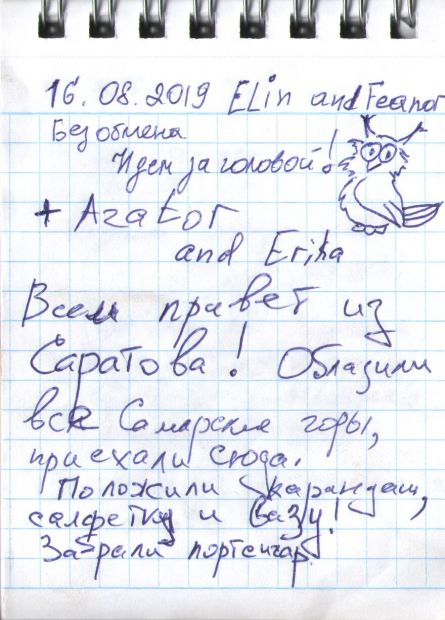 16.08.2019 ELin and Feanor
Без обмена
Идем за головой!
+ Azator
and Erika
Всем привет из
Саратова! Облазили
все Самарские горы,
приехали сюда.
Положили карандаш,
салфетку и вазу!
Забрали портсигар.